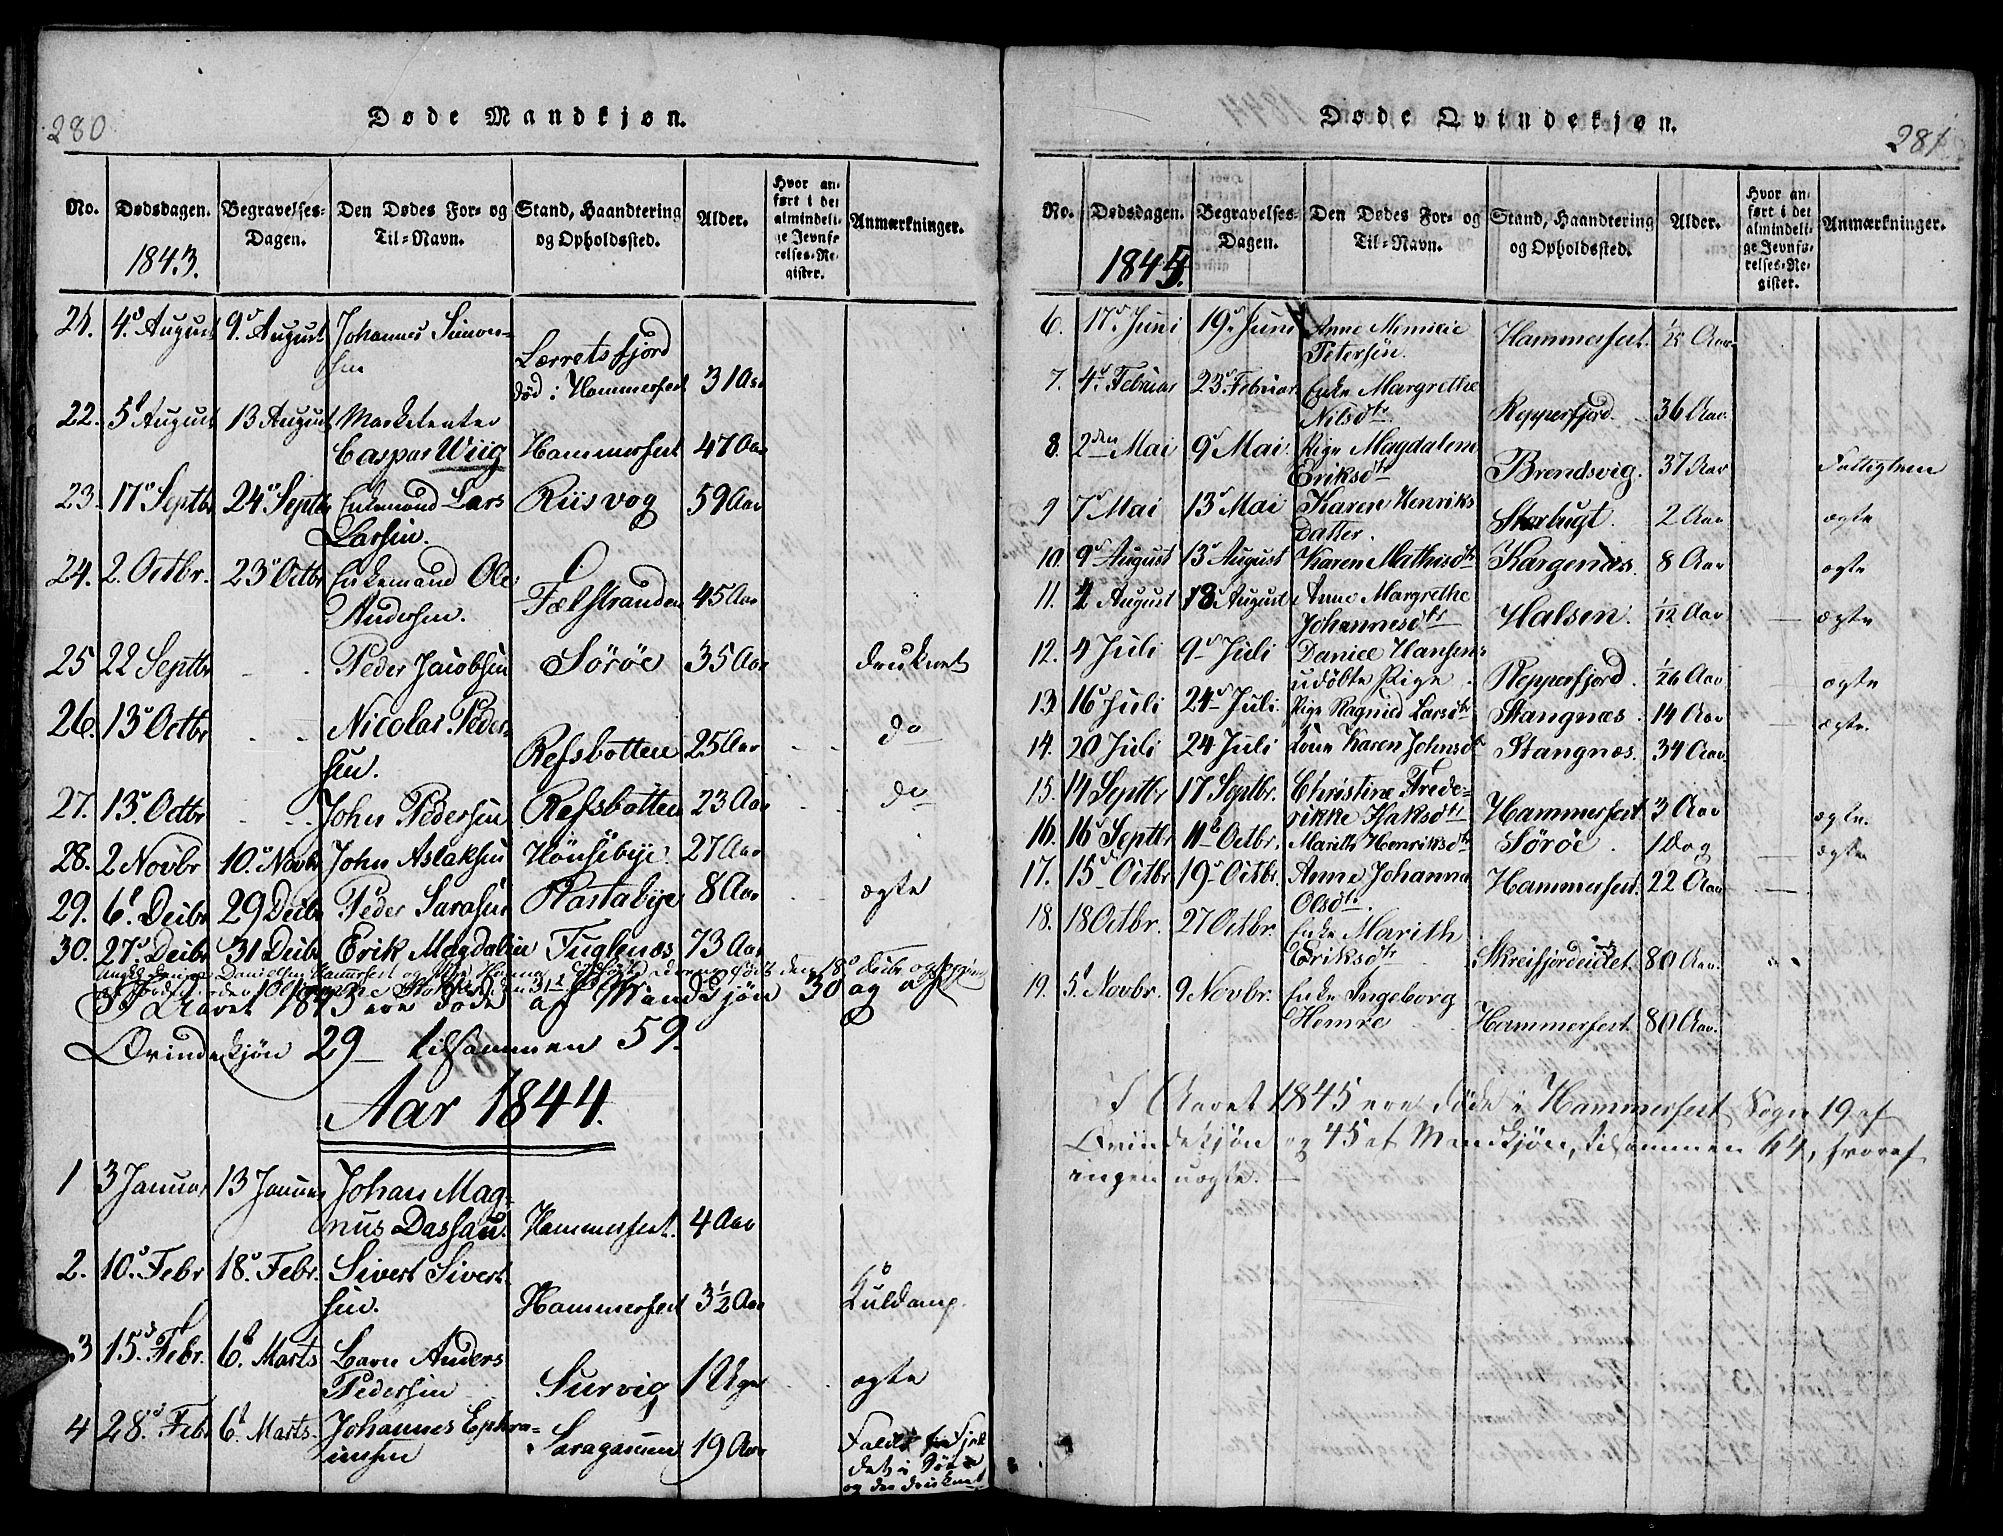 280
Døde Mandkjøn.
No. Dødsdagen. Begravelses-Dagen. Den Dødes For- og Til-Navn. Stand, Haandtering og Opholdssted. Alder. Hvor anført i det almindelige Jevnførelses-Register. Anmærkninger.
1843.
21. 4d August 9d August Johannes Simon-
sen Lerretsfjord
død i Hammerfest 31 Aar
22. 5t August 13 August Marketenter
Caspar Wiig Hammerfest 47 Aar
23. 17d Septbr 24d Septbr Enkemand Lars Riisvog 59 Aar
Larsen.
24. 2. Octbr. 23d Octbr Enkemand Ole
Andersen. Fælstranden 45 Aar
25 22 Septbr Peder Jacobsen Sörøe 35 Aar druknet
26. 13d Octbr Nicolai Peder-
sen. Refsbotten 25 Aar do
27. 13d Octbr John Pedersen Refsbotten 23 Aar do
28. 2 Novbr 10d Novbr John Aslaksen Hönsebye. 27 Aar
29. 6t Decbr 29 Decbr Peder Sarasen Rastabye 8 Aar ægte
30. 27d Decbr 31 Decbr Erik Magdalin Fuglenæs 73 Aar
I Aaret 1843 ere døde af Mandkjön 30 og af
Qvindekjön 29 tilsammen 59.
Aar 1844.
1 3 Januar 13 Januar Johan Mag-
nus Dassau. Hammerfest. 4 Aar
2. 10d Febr 18d Febr. Sivert Sivert-
sen. Hammerfest 3½ Aar
3 15d Febr. 6t Marts Anders
Pedersen Survig 1 Uger ægte
4 28d Febr 6t Marts Johannes Ephra-
imsen Saragammen 19 Aar
281
Døde Qvindekjøn.
No. Dødsdagen. Begravelses-Dagen. Den Dødes For- og Til-Navn. Stand, Haandtering og Opholdssted. Alder. Hvor anført i det almindelige Jevnførelses-Register. Anmærkninger.
1845.
6. 17d Juni 19d Juni Anne
Petersen. Hammerfest. Aar
7. 4d Februar 23d Februar Enke Margrethe
Nilsdtr Repperfjord. 36 Aar
8. 2den Mai 9d Mai Pige Magdalene
Eriksdtr Brendsvig. 37 Aar
9 7d Mai 13d Mai Karen Henriks
datter. Storbugt. 2 Aar ægte
10. 9d August 13d August Karen Mathisdtr Kargenæs. 8 Aar ægte
11. 4 August 18d August Anne Margrethe
Johannesdtr Halsen. 1/12 Aar ægte
12. 4 Juli 9d Juli Daniel Hansens
udøbte Pige Repperfjord. 1/26 Aar ægte
13 16d Juli 24d Juli Pige Ragnild Larsdtr Stangnæs. 14 Aar ægte.
14. 20 Juli 24 Juli Kone Karen Johnsdtr Stangnæs. 34 Aar
15. 14 Septbr 17 Septbr. Christine Frede-
rikke Isaksdtr Hammerfest 3 Aar ægte.
16. 16d Septbr 11t Octbr. Marith Henriksdtr Sörøe. 1 Dag ægte
17. 15d Octbr 19d Octbr. Anne Johanna
Olsdtr. Hammerfest. 22 Aar
18. 18 Octbr. 27 Octbr. Enke Marith
Eriksdtr Skreifjordeidet. 80 Aar.
19. 5t Novbr. 9 Novbr. Enke Ingeborg
Hemre Hammerfest. 80 Aar.
I Aaret 1845 ere døde i Hammerfest Sogn 19 af
Qvindekjön og 45 af Mandkjön, tilsammen 64, hvoraf
ingen uægte.